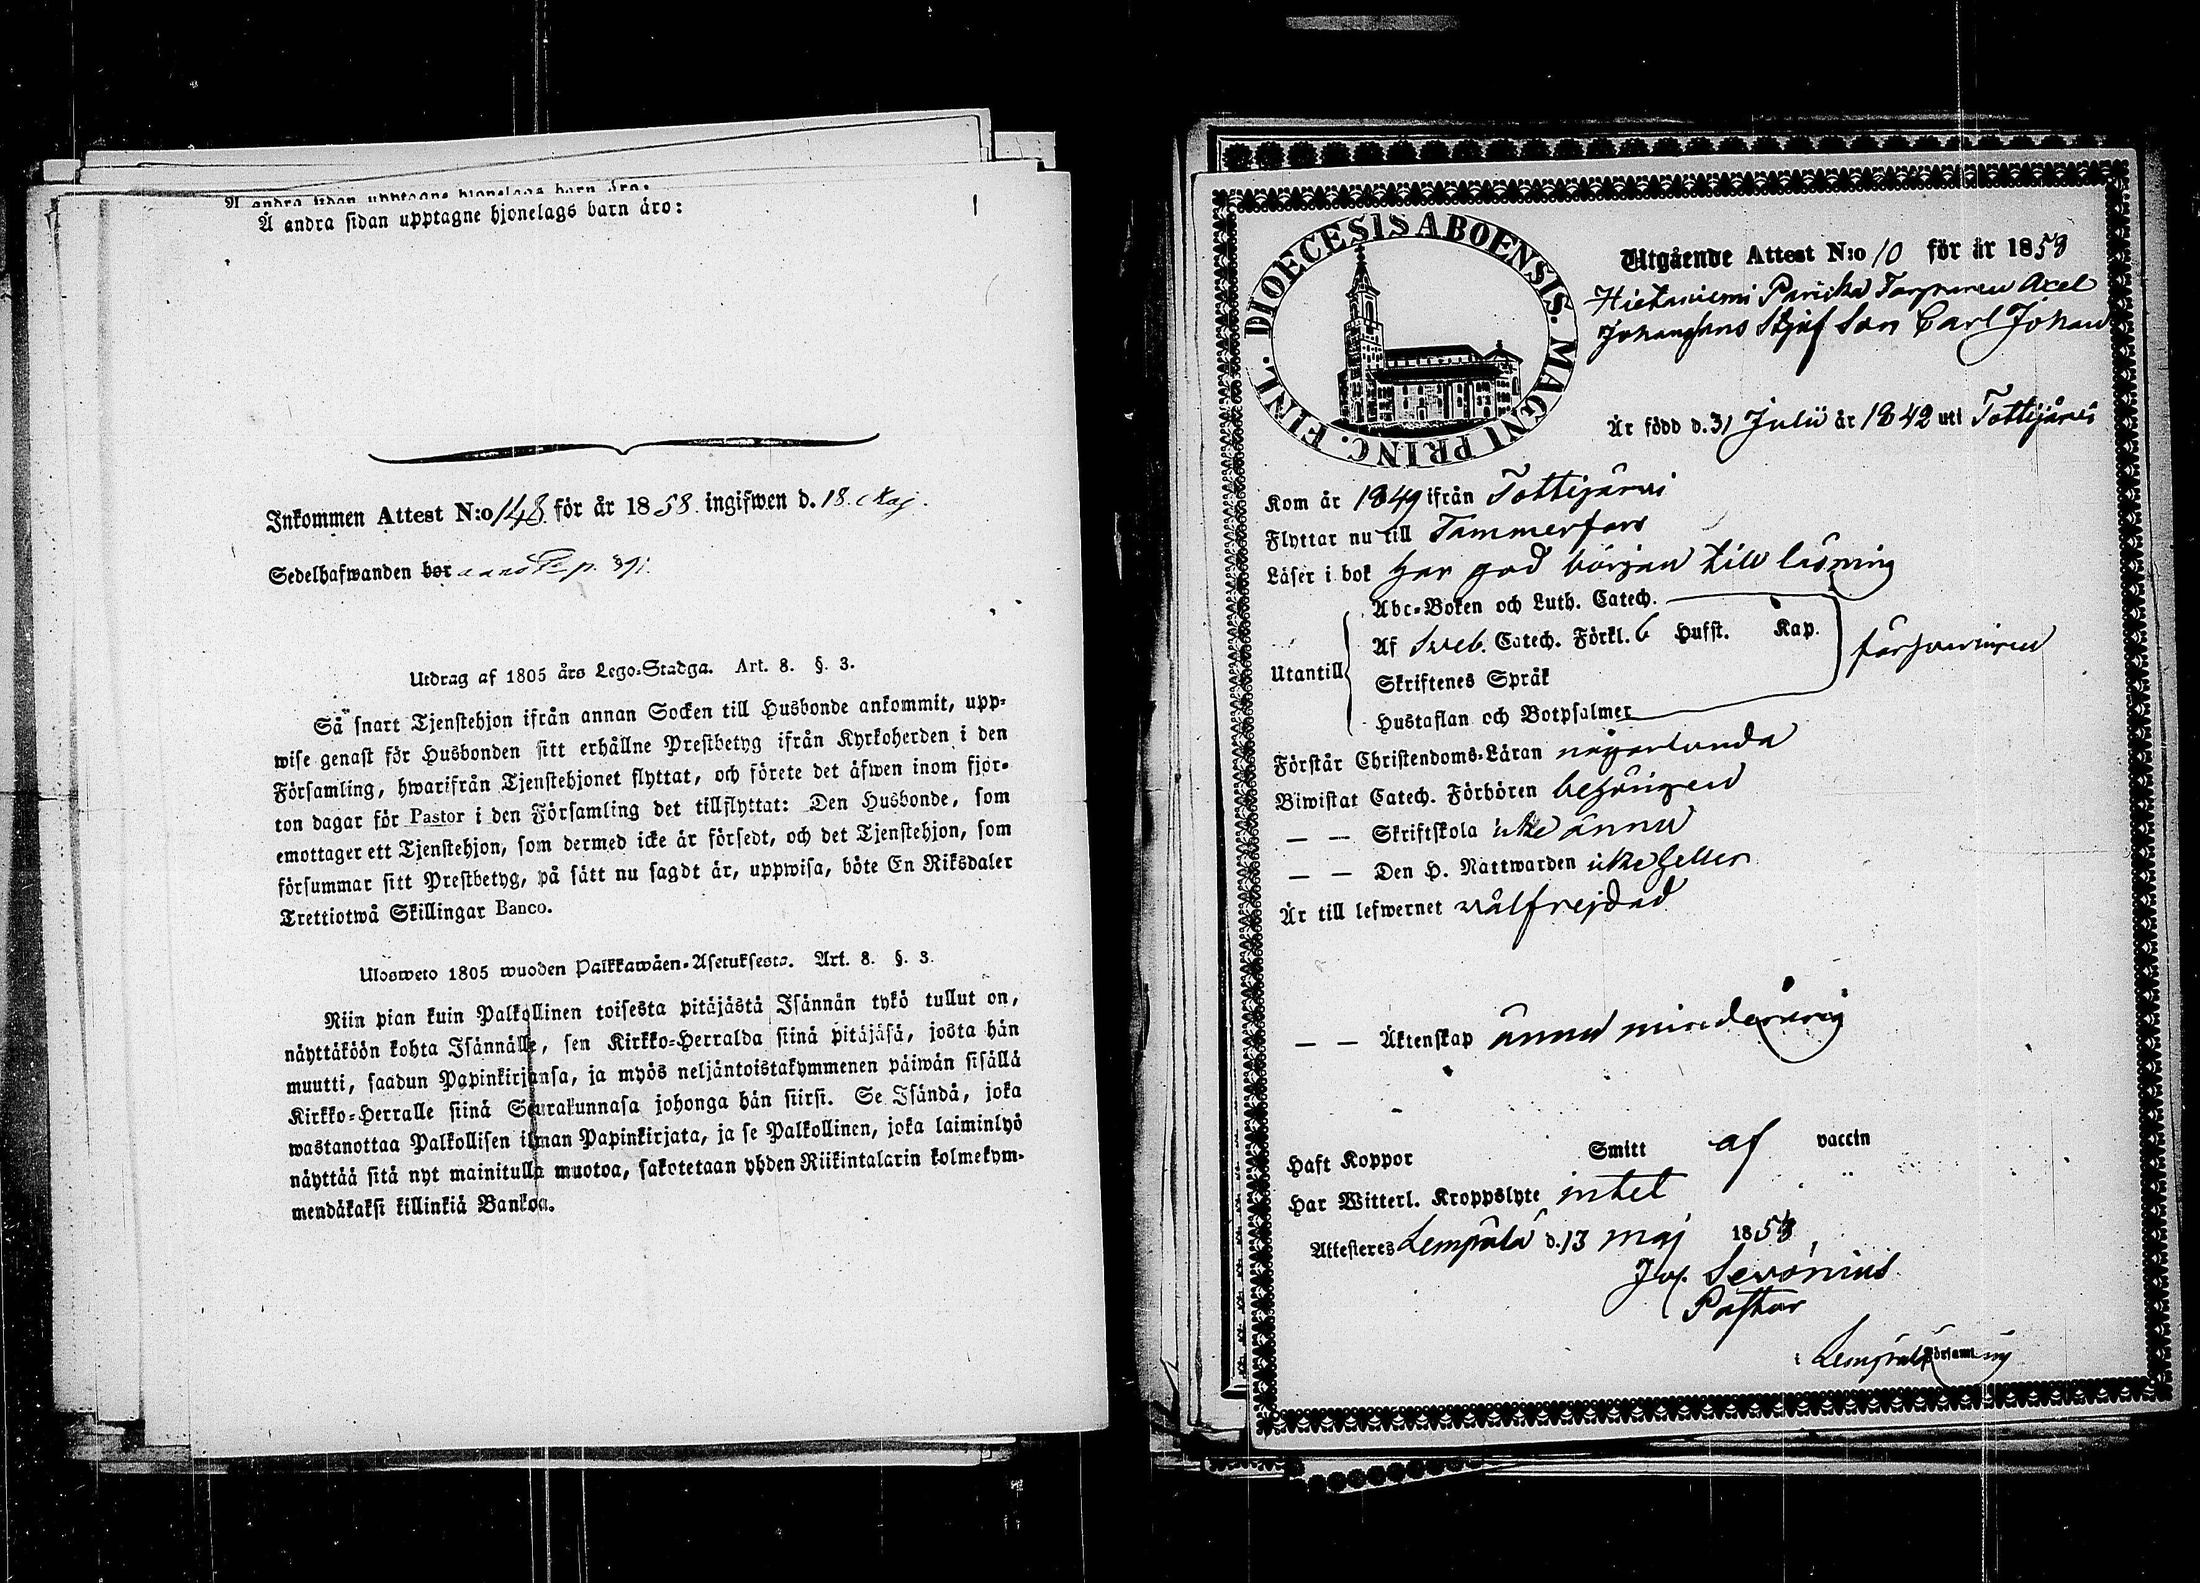 Å andra sidan upptagne hjonelags barn äro:
Å andra sidan upptagne hjonelags barn äro:
Inkommen Attest N:o 148 för år 1858. ingifwen d. 18. Maj.
Sedelhafwanden bor p. 391.
Utdrag af 1805 års Lego-Stadga. Art. 8. §. 3.
Så snart Tjenstehjon ifrån annan Socken till Husbonde ankommit, upp-
wise genast för Husbonden sitt erhållne Prestbetyg ifrån Kyrkoherden i den
Församling, hwarifrån Tjenstehjonet flyttat, och förete det äfwen inom fjor-
ton dagar för Pastor i den Församling det tillflyttat: Den Husbonde, som
emottager ett Tjenstehjon, som dermed icke är försedt, och det Tjenstehjon, som
försummar sitt Prestbetyg, på sätt nu sagdt är, uppwisa, böte En Riksdaler
Trettiotwå Skillingar Banco.
Ulosweto 1805 wuoden Palkkawäen-Asetuksesta. Art. 8. §. 3.
Niin pian kuin Palkollinen toisesta pitäjästä Isännän tykö tullut on,
näyttäköön kohta Isännälle, sen Kirkko-Herralda siinä pitäjäsä, josta hän
muutti, saadun Papinkirjansa, ja myös neljäntoistakymmenen päiwän sisällä
Kirkko-Herralle siinä Seurakunnasa johonga hän siirsi. Se Isändä, joka
wastanottaa Palkollisen ilman Papinkirjata, ja se Palkollinen, joka laiminlyö
näyttää sitä nyt mainitulla muotoa, sakotetaan yhden Riikintalarin kolmekym-
mendäkaksi killinkiä Bankoa.
DIOECESIS ABOENSIS. MAGNI PRINC. FINL.
Utgående Attest N:o 10 för år 1858
Hietaniemi Torparen Axel
Johanssons Son Carl Johan
Är född d. 31 Julii år 1842 uti Tottijärvi
Kom år 1849 ifrån Tottijärvi
Flyttar nu till Tammerfors
Läser i bok har god början till läsning
Abc-Boken och Luth. Catech.
Af Sveb. Catech. Förkl. 6 Hufst. Kap.
Utantill försvarligen
Skriftenes Språk
Hustaflan och Botpsalmer
Förstår Christendoms-Läran någorlunda
Biwistat Catech. Förhören behörigen
— — Skriftskola icke ännu
— — Den H. Nattwarden icke heller
Är till lefwernet välfrejdad
— — Äktenskap ännu minderårig
Haft Koppor Smitt af vaccin
Har Witterl. Kroppslyte intet
Attesteres Lempälä d. 13 maj 1858
Jos. Sevonius
Pastor
i Lempälä Församling